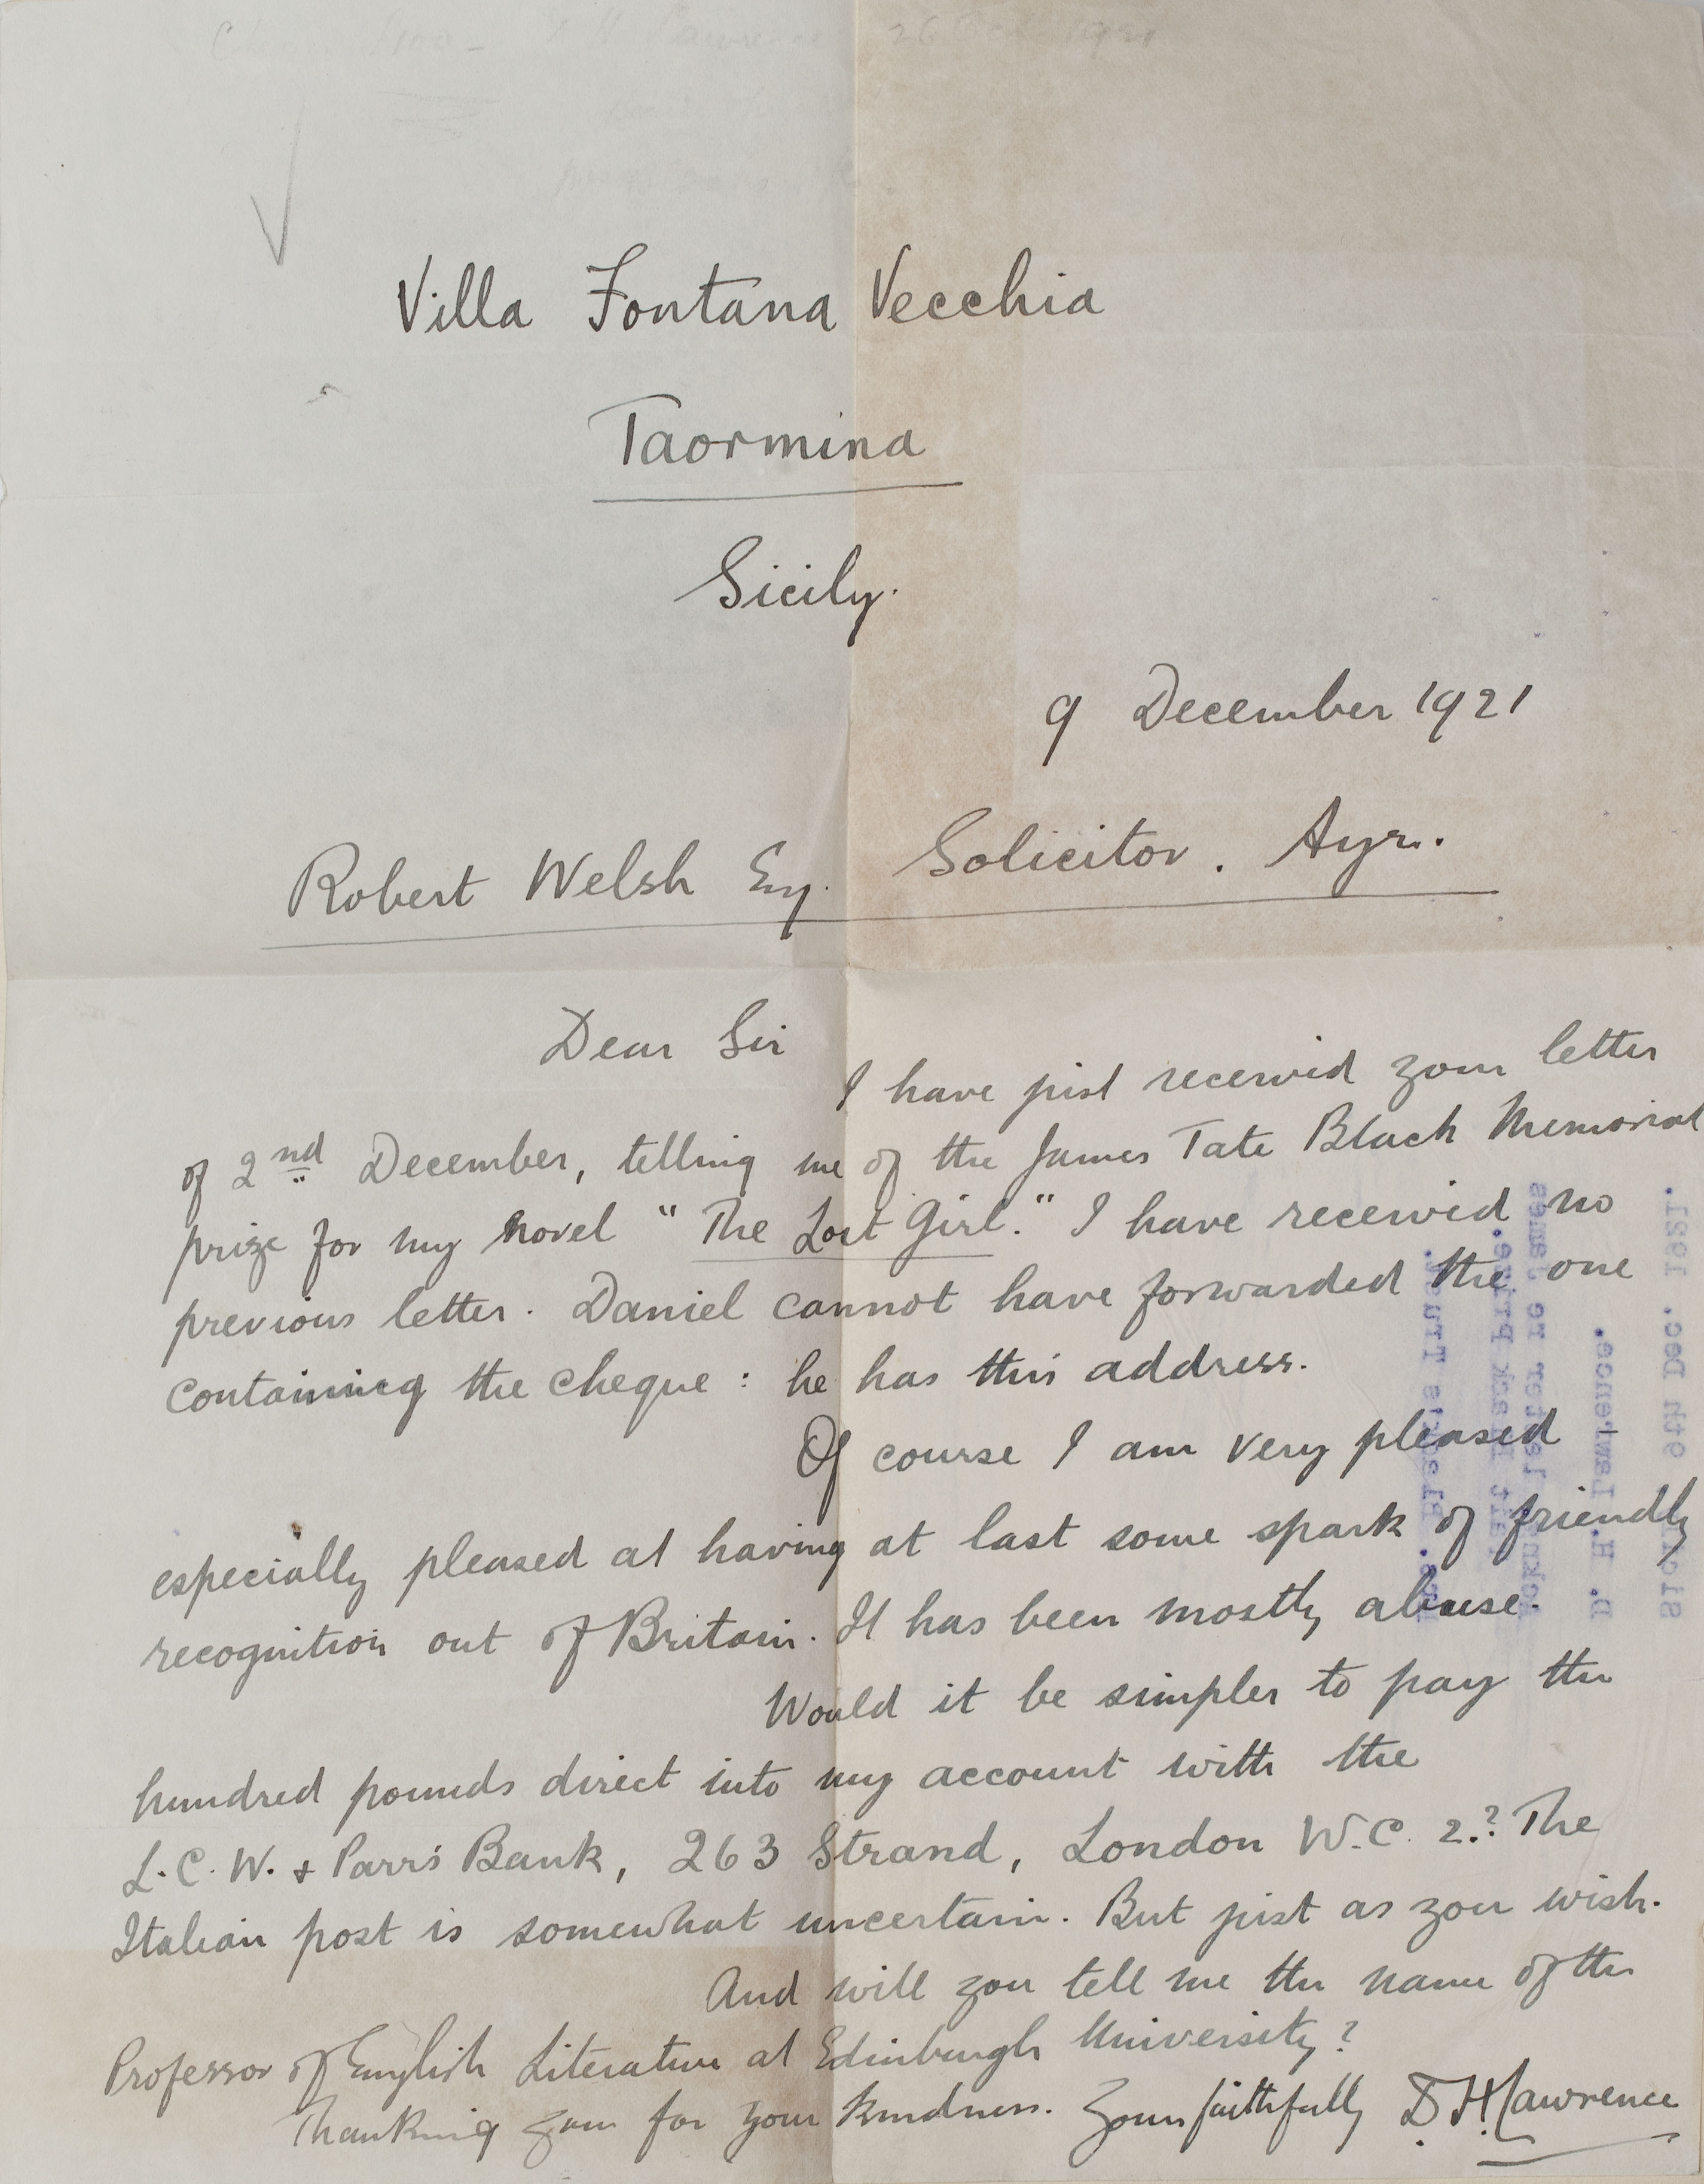 26 1921
Villa Fontana Vecchia
Taormina
Sicily.
9 December 1921
Robert Welsh Esq. Solicitor. Ayr.
Dear Sir
I have just received your letter
of 2nd December, telling me of the James Tate Black Memorial
prize for my novel "The Lost Girl." I have received no
previous letter. Daniel cannot have forwarded the one
containing the cheque: he has this address.
Of course I am very pleased -
especially pleased at having at last some spark of friendly
recognition out of Britain. It has been mostly abuse.
Would it be simpler to pay the
hundred pounds direct into my account with the
L.C.W. & Parr's Bank, 263 Strand, London W.C. 2.? The
Italian post is somewhat uncertain. But just as you wish.
And will you tell me the name of the
Professor of English Literature at Edinburgh University?
Thanking you for your kindness. Yours faithfully D.H. Lawrence
9th Dec. 1921.
D. H. Lawrence.
letter re James
Tait Black Prize.
Trust.